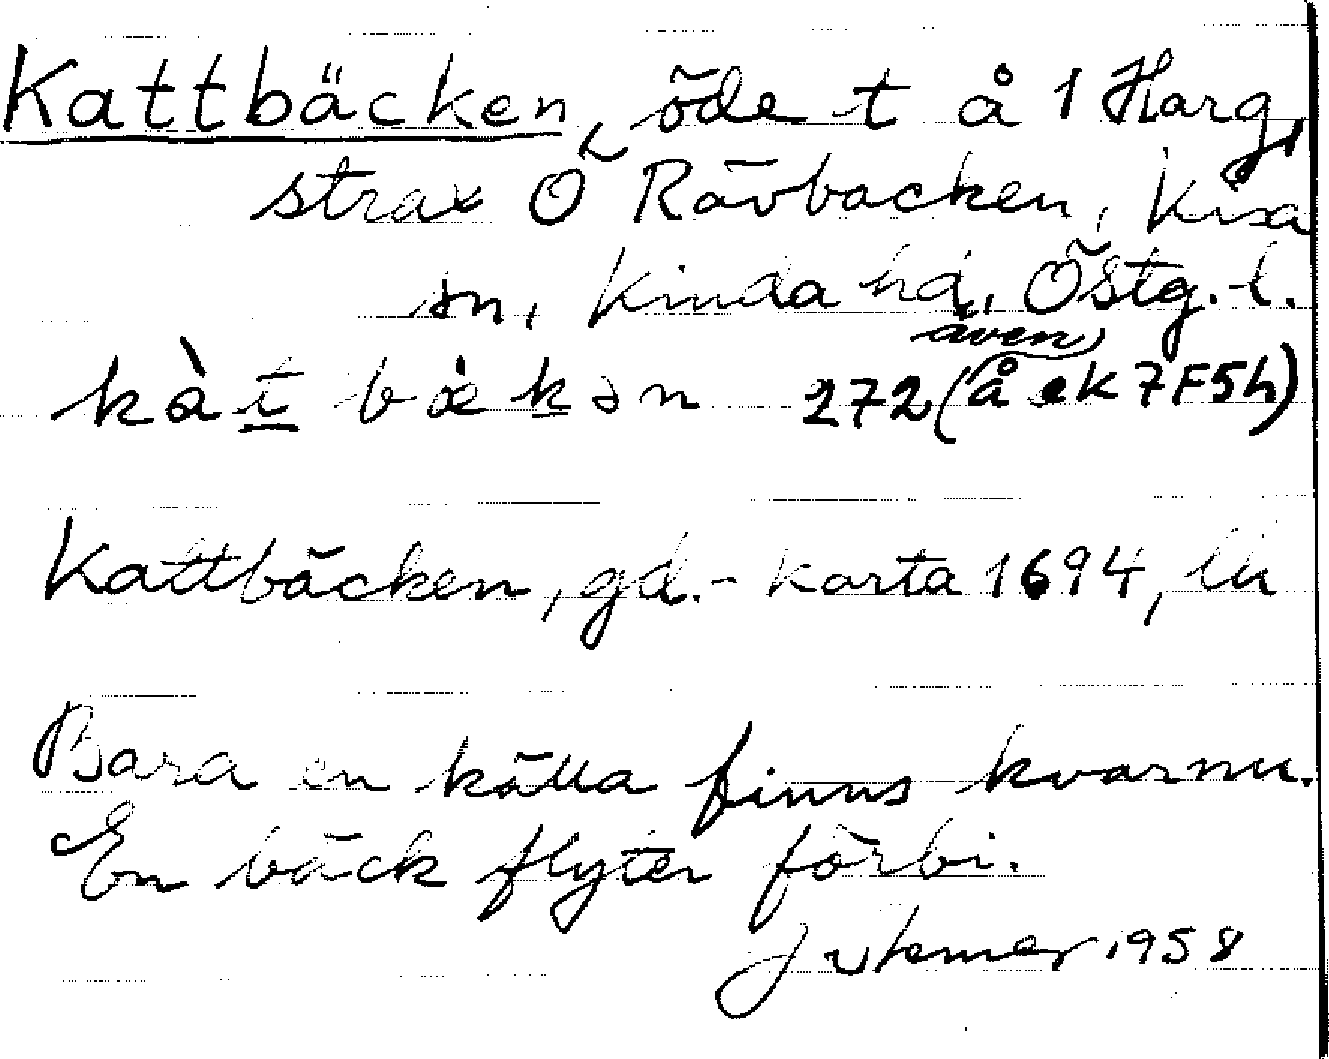 Kattbäcken, öde t å 1 Harg,
strax Ö Rävbacken, Kisa
sn, Kinda hd, Östg. l.
kàt bækən 272 (även å ek 7F5h)
Kattbäcken, gd.- karta 1694, lk
Bara en källa finns kvar nu.
En bäck flyter förbi.
J 1958